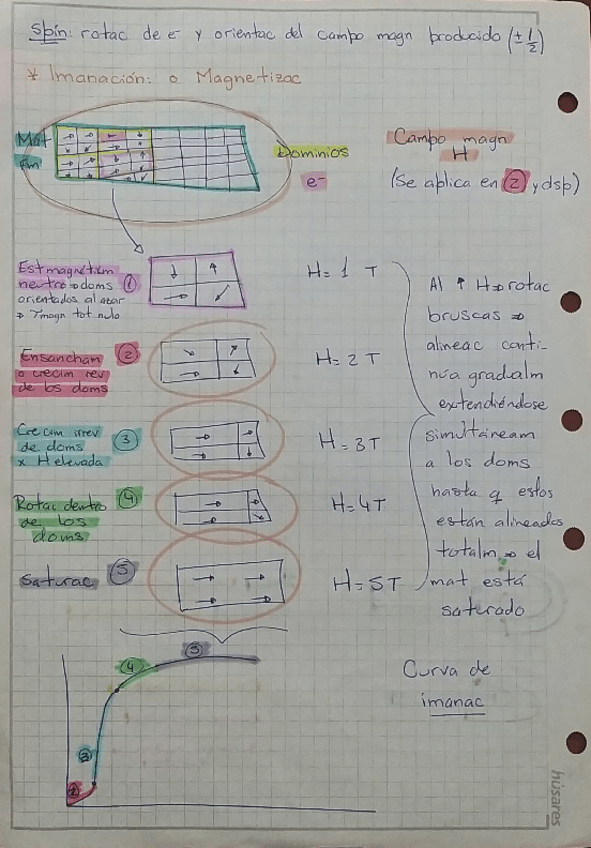 Spin: rotac de e- y orientac del campo magn producido (± 1/2)
* Imanación: o Magnetizac
Mat
fm
Dominios
e-
Campo magn
H
(Se aplica en ② y dsp)
Est magnéticam
neutro → doms ①
orientados al azar
→ magn tot nulo
H = 1 T
Ensancham ②
o crecim rev
de los doms
H = 2 T
Crecim irrev
de doms ③
x H elevada
H = 3 T
Rotac dentro ④
de los
doms
H = 4 T
Saturac ⑤
H = 5 T
Al ↑ H → rotac
bruscas →
alineac conti-
núa gradualm
extendiéndose
simultáneam
a los doms
hasta q estos
están alineados
totalm → el
mat está
saturado
⑤
④
③
②
Curva de
imanac
húsares